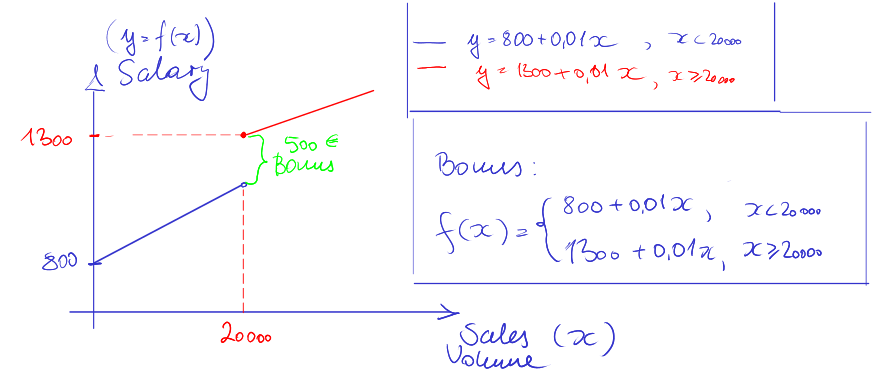 (y=f(x))
Salary
1300
500 €
Bonus
800
20000
Sales (x)
Volume
y=800+0,01x , x<20000
y=1300+0,01x, x≥20000
Bonus:
f(x)={800+0,01x, x<20000
1300+0,01x, x≥20000